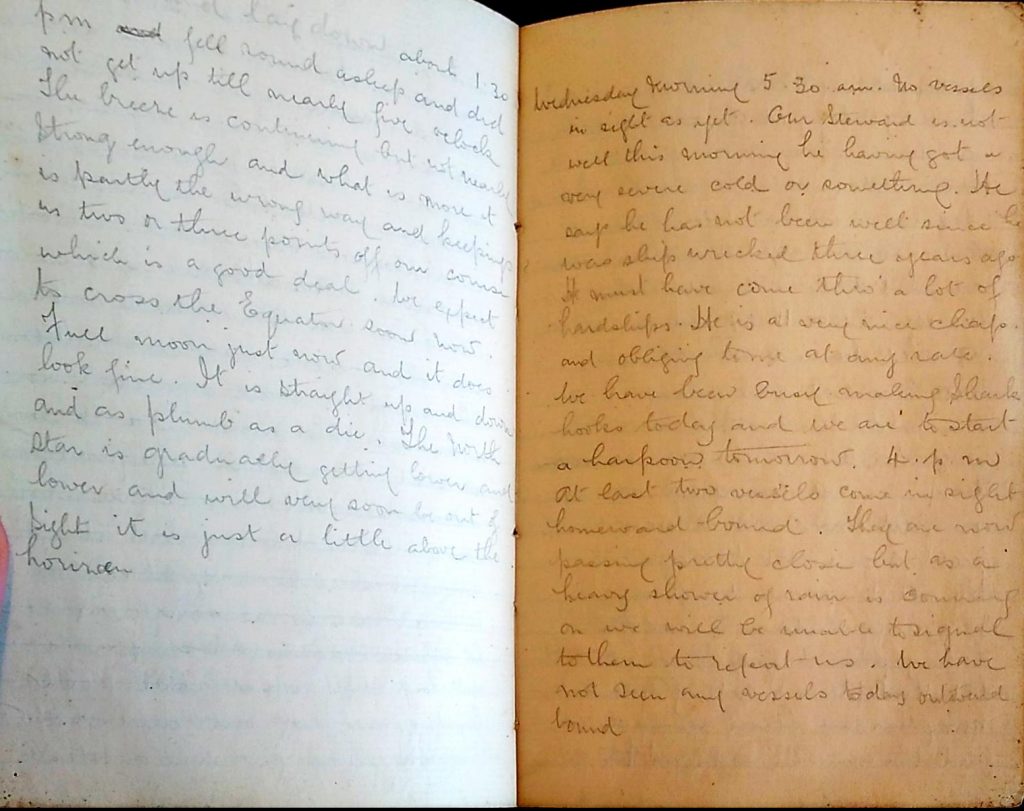 and laid down about 1.30
pm and fell sound asleep and did
not get up till nearly five oclock
The breeze is continuing but not nearly
strong enough and what is more it
is partly the wrong way and keeping
us two or three points off our course
which is a good deal. We expect
to cross the Equator soon now.
Full moon just now and it does
look fine. It is straight up and down
and as plumb as a die. The North
star is gradually getting lower and
lower and will very soon be out of
sight it is just a little above the
horizon
Wednesday Morning 5.30 am. No vessels
in sight as yet. Our Steward is not
well this morning he having got a
very severe cold or something. He
says he has not been well since he
was ship wrecked three years ago
He must have come thro' a lot of
hardships. He is a very nice chap.
and obliging to me at any rate.
We have been busy making Shark
hooks today and we are to start
a harpoon tomorrow. 4. p m
At last two vessels come in sight
homeward bound. They are now
passing pretty close but as a
heavy shower of rain is coming
on we will be unable to signal
to them to report us. We have
not seen any vessels today outward
bound